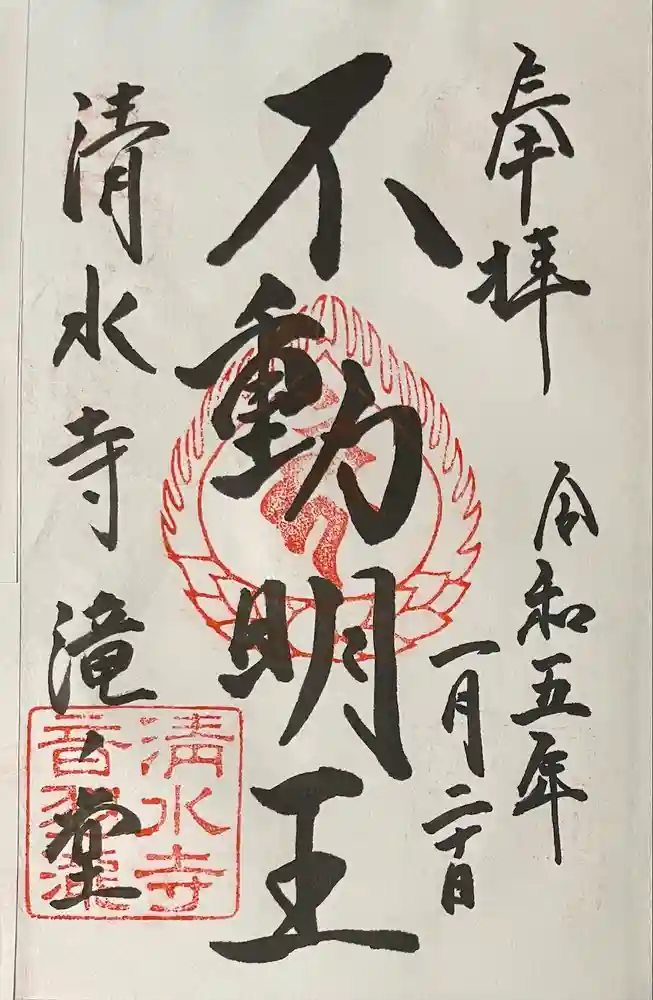 奉拝
令和五年
一月二十日
不動明王
清水寺滝ノ堂
清水寺
音羽滝